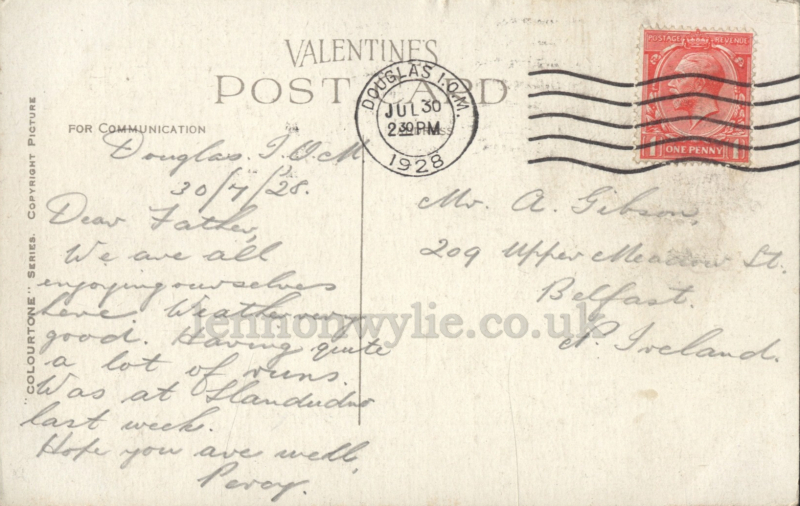 VALENTINE'S
POST CARD
FOR COMMUNICATION
"COLOURTONE" SERIES. COPYRIGHT PICTURE
DOUGLAS I.O.M.
JUL 30
2 30 PM
1928
POSTAGE REVENUE
ONE PENNY
Douglas. I.O.M
30/7/28.
Dear Father,
We are all
enjoying ourselves
here. Weather very
good. Having quite
a lot of runs.
Was at Llandudno
last week.
Hope you are well,
Percy.
Mr. A. Gibson,
209 Upper Meadow St.
Belfast.
N. Ireland.
lennonwylie.co.uk